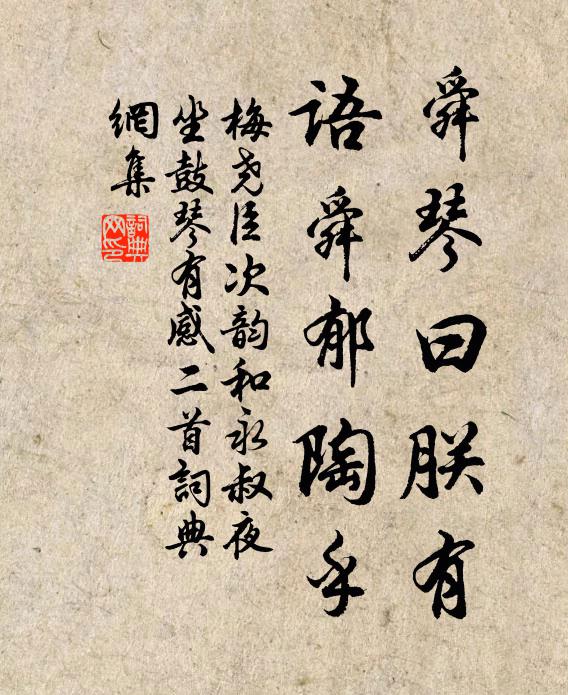 舜琴曰朕有
語舜郁陶乎
梅尧臣次韵和永叔夜
坐鼓琴有感二首詞典
網集
詞典
网印